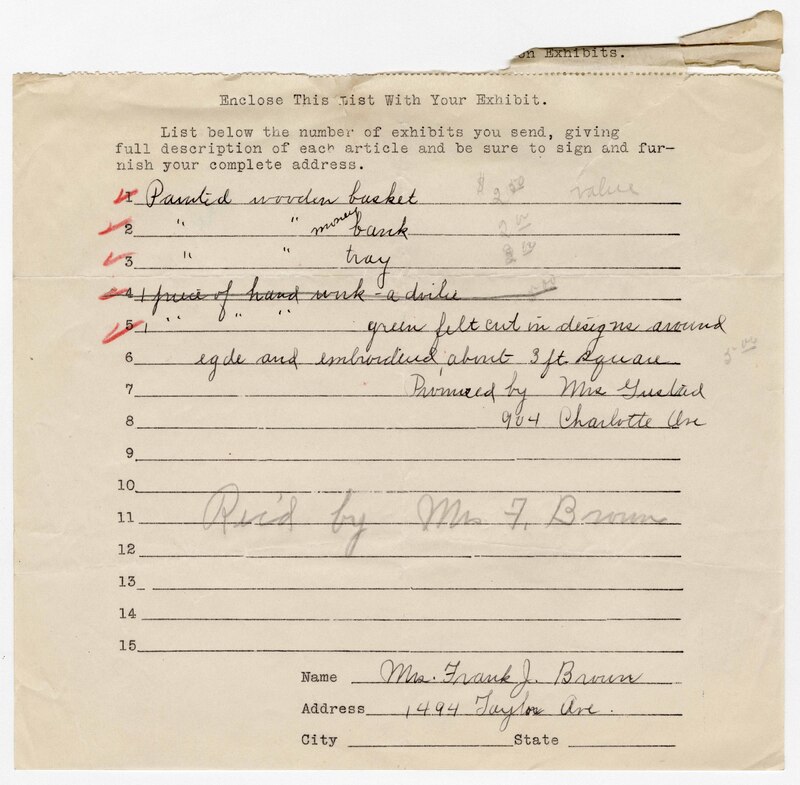 on Exhibits.
Enclose This List With Your Exhibit.
List below the number of exhibits you send, giving
full description of each article and be sure to sign and fur-
nish your complete address.
1 Painted wooden basket $2.50 value
2 " " money bank 2.00
3 " " tray
4 1 piece of hand work - a doilie
5 1 " " " green felt cut in designs around
6 egde and embroidered, about 3 ft. square 5.00
7 Promised by Mrs Gustad
8 904 Charlotte Ave
9
10
11 Rec'd by Mrs F. Brown
12
13
14
15
Name Mrs. Frank J. Brown
Address 1494 Taylor Ave.
City State